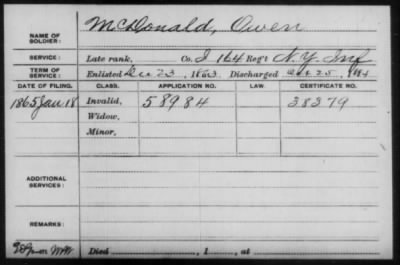 NAME OF SOLDIER: McDonald, Owen
SERVICE: Late rank, Co. I 164 Reg't N.Y. Inf
TERM OF SERVICE: Enlisted Dec 23, 1863 Discharged 25, 1864
DATE OF FILING. CLASS. APPLICATION NO. LAW. CERTIFICATE NO.
1865 Jan 18 Invalid, 58984 38379
Widow,
Minor,
ADDITIONAL SERVICES:
REMARKS:
Died , 1 , at